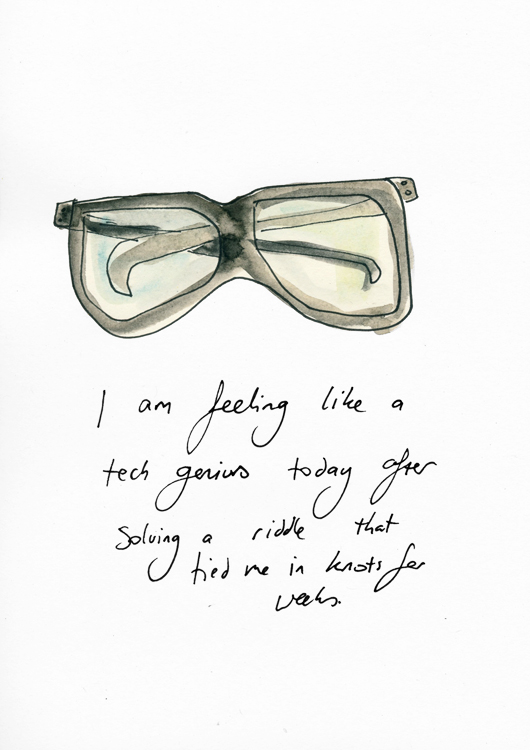 I am feeling like a
tech genius today after
solving a riddle that
tied me in knots for
weeks.